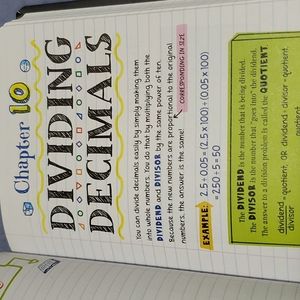 Chapter 10
DIVIDING
DECIMALS
You can divide decimals easily by simply making them
into whole numbers. You do that by multiplying both the
DIVIDEND and DIVISOR by the same power of ten.
Because the new numbers are proportional to the original
numbers, the answer is the same!
CORRESPONDING IN SIZE
EXAMPLE: 2.5 ÷ 0.05 = (2.5 x 100) ÷ (0.05 x 100)
= 250 ÷ 5 = 50
The DIVIDEND is the number that is being divided.
The DIVISOR is the number that "goes into" the dividend.
The answer to a division problem is called the QUOTIENT.
dividend ÷ divisor = quotient
dividend
divisor = quotient, OR
quotient